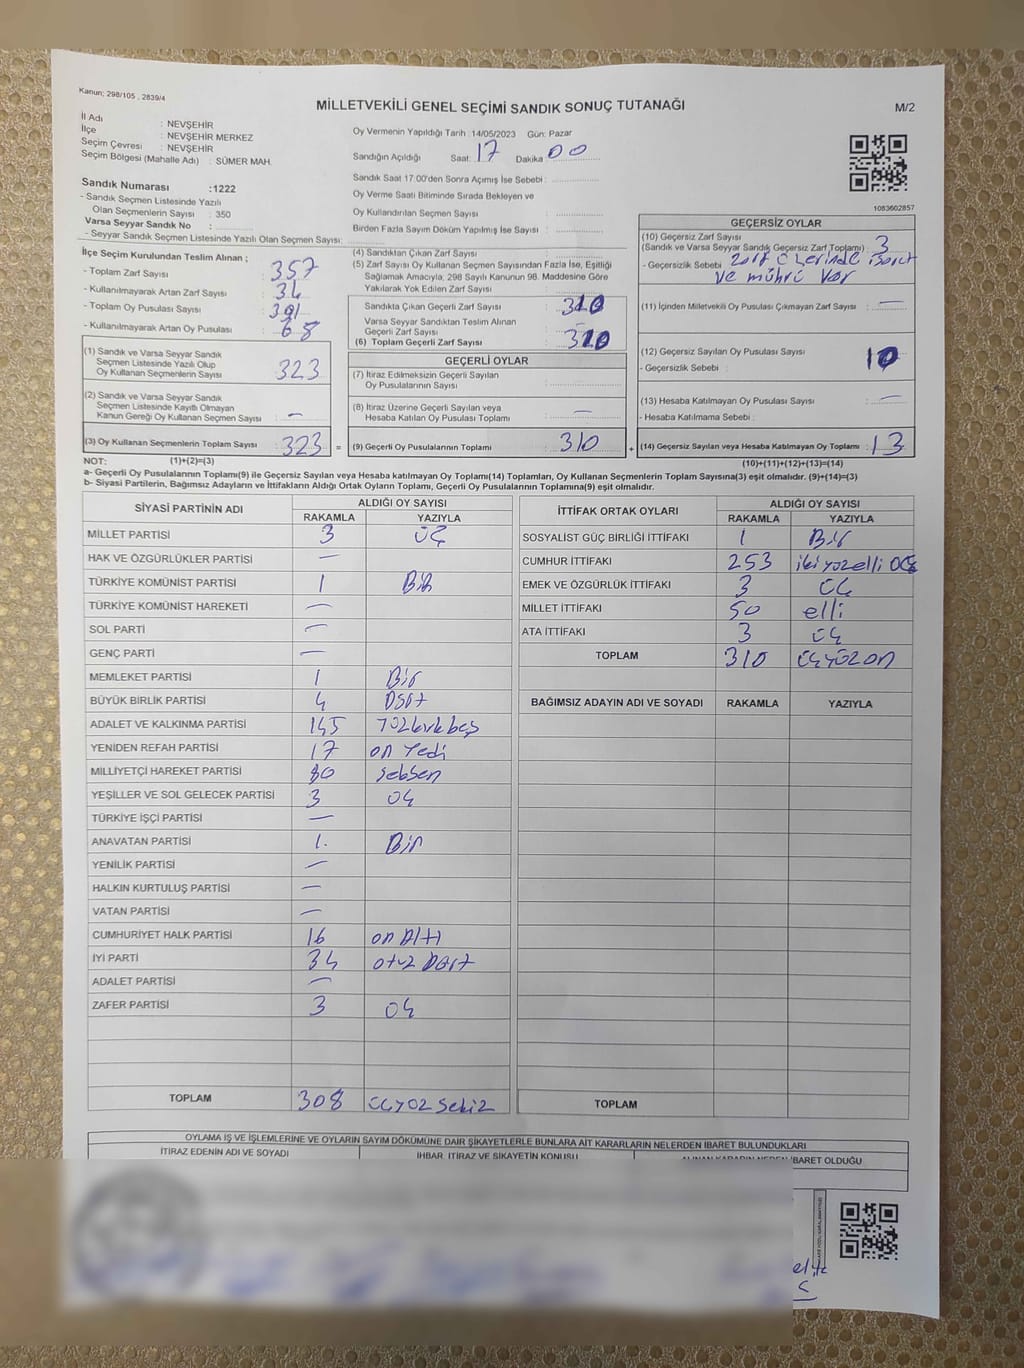 Kanun; 298/105 , 2839/4
MİLLETVEKİLİ GENEL SEÇİMİ SANDIK SONUÇ TUTANAĞI
M/2
İl Adı : NEVŞEHİR
İlçe : NEVŞEHİR MERKEZ
Seçim Çevresi : NEVŞEHİR
Seçim Bölgesi (Mahalle Adı) : SÜMER MAH.
Sandık Numarası :1222
- Sandık Seçmen Listesinde Yazılı
Olan Seçmenlerin Sayısı : 350
Varsa Seyyar Sandık No :
- Seyyar Sandık Seçmen Listesinde Yazılı Olan Seçmen Sayısı:
Oy Vermenin Yapıldığı Tarih :14/05/2023 Gün: Pazar
Sandığın Açıldığı Saat: 17 Dakika: 00
Sandık Saat 17:00'den Sonra Açımış İse Sebebi :
Oy Verme Saati Bitiminde Sırada Bekleyen ve
Oy Kullandırılan Seçmen Sayısı :
Birden Fazla Sayım Döküm Yapılmış İse Sayısı :
1083602857
İlçe Seçim Kurulundan Teslim Alınan ;
- Toplam Zarf Sayısı : 357
- Kullanılmayarak Artan Zarf Sayısı : 34
- Toplam Oy Pusulası Sayısı : 391
- Kullanılmayarak Artan Oy Pusulası : 68
(1) Sandık ve Varsa Seyyar Sandık
Seçmen Listesinde Yazılı Olup
Oy Kullanan Seçmenlerin Sayısı : 323
(2) Sandık ve Varsa Seyyar Sandık
Seçmen Listesinde Kayıtlı Olmayan
Kanun Gereği Oy Kullanan Seçmen Sayısı : —
(3) Oy Kullanan Seçmenlerin Toplam Sayısı : 323 =
(4) Sandıktan Çıkan Zarf Sayısı :
(5) Zarf Sayısı Oy Kullanan Seçmen Sayısından Fazla İse, Eşitliği
Sağlamak Amacıyla, 298 Sayılı Kanunun 98. Maddesine Göre
Yakılarak Yok Edilen Zarf Sayısı :
Sandıkta Çıkan Geçerli Zarf Sayısı : 310
Varsa Seyyar Sandıktan Teslim Alınan
Geçerli Zarf Sayısı :
(6) Toplam Geçerli Zarf Sayısı : 310
GEÇERLİ OYLAR
(7) İtiraz Edilmeksizin Geçerli Sayılan
Oy Pusulalarının Sayısı :
(8) İtiraz Üzerine Geçerli Sayılan veya
Hesaba Katılan Oy Pusulası Toplamı : —
(9) Geçerli Oy Pusulalarının Toplamı : 310 +
GEÇERSİZ OYLAR
(10) Geçersiz Zarf Sayısı
(Sandık ve Varsa Seyyar Sandık Geçersiz Zarf Toplamı) : 3
- Geçersizlik Sebebi : zarf üzerinde
ve mührü var
(11) İçinden Milletvekili Oy Pusulası Çıkmayan Zarf Sayısı : —
(12) Geçersiz Sayılan Oy Pusulası Sayısı : 10
- Geçersizlik Sebebi :
(13) Hesaba Katılmayan Oy Pusulası Sayısı : —
- Hesaba Katılmama Sebebi :
(14) Geçersiz Sayılan veya Hesaba Katılmayan Oy Toplamı : 13
NOT: (1)+(2)=(3)
(10)+(11)+(12)+(13)=(14)
a- Geçerli Oy Pusulalarının Toplamı(9) ile Geçersiz Sayılan veya Hesaba katılmayan Oy Toplamı(14) Toplamları, Oy Kullanan Seçmenlerin Toplam Sayısına(3) eşit olmalıdır. (9)+(14)=(3)
b- Siyasi Partilerin, Bağımsız Adayların ve İttifakların Aldığı Ortak Oyların Toplamı, Geçerli Oy Pusulalarının Toplamına(9) eşit olmalıdır.
SİYASİ PARTİNİN ADI ALDIĞI OY SAYISI
RAKAMLA YAZIYLA
MİLLET PARTİSİ 3 ÜÇ
HAK VE ÖZGÜRLÜKLER PARTİSİ —
TÜRKİYE KOMÜNİST PARTİSİ 1 BİR
TÜRKİYE KOMÜNİST HAREKETİ —
SOL PARTİ —
GENÇ PARTİ —
MEMLEKET PARTİSİ 1 Bir
BÜYÜK BİRLİK PARTİSİ 4 Dört
ADALET VE KALKINMA PARTİSİ 145 Yüzkırkbeş
YENİDEN REFAH PARTİSİ 17 on Yedi
MİLLİYETÇİ HAREKET PARTİSİ 80 seksen
YEŞİLLER VE SOL GELECEK PARTİSİ 3 Üç
TÜRKİYE İŞÇİ PARTİSİ —
ANAVATAN PARTİSİ 1. Bir
YENİLİK PARTİSİ —
HALKIN KURTULUŞ PARTİSİ —
VATAN PARTİSİ —
CUMHURİYET HALK PARTİSİ 16 on Altı
İYİ PARTİ 34 otuz Dört
ADALET PARTİSİ —
ZAFER PARTİSİ 3 Üç
TOPLAM 308 üçyüz sekiz
İTTİFAK ORTAK OYLARI ALDIĞI OY SAYISI
RAKAMLA YAZIYLA
SOSYALİST GÜÇ BİRLİĞİ İTTİFAKI 1 Bir
CUMHUR İTTİFAKI 253 ikiyüzelli üç
EMEK VE ÖZGÜRLÜK İTTİFAKI 3 üç
MİLLET İTTİFAKI 50 elli
ATA İTTİFAKI 3 üç
TOPLAM 310 üçyüzon
BAĞIMSIZ ADAYIN ADI VE SOYADI RAKAMLA YAZIYLA
TOPLAM
OYLAMA İŞ VE İŞLEMLERİNE VE OYLARIN SAYIM DÖKÜMÜNE DAİR ŞİKAYETLERLE BUNLARA AİT KARARLARIN NELERDEN İBARET BULUNDUKLARI
İTİRAZ EDENİN ADI VE SOYADI İHBAR, İTİRAZ VE ŞİKAYETİN KONUSU ALINAN KARARIN NEDEN İBARET OLDUĞU